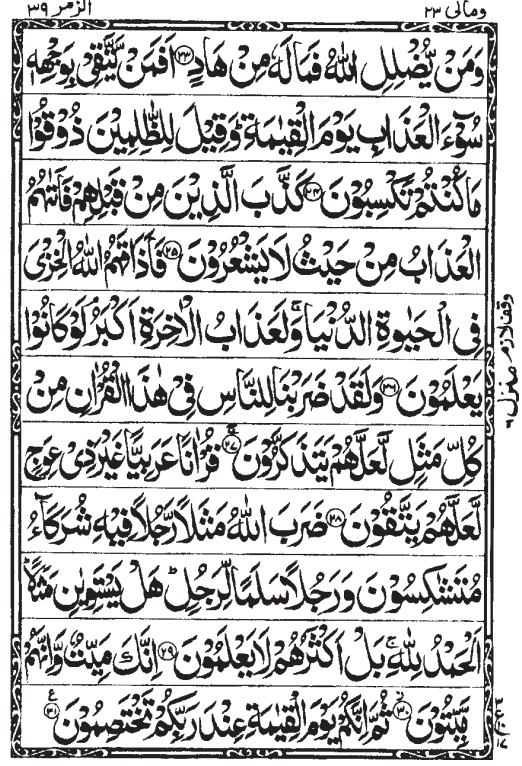 ومالی ۲۳
الزمر ۳۹
وَمَنْ يُّضْلِلِ اللّٰهُ فَمَا لَهٗ مِنْ هَادٍ ﴿۲۳﴾ اَفَمَنْ يَّتَّقِىْ بِوَجْهِهٖ
سُوْٓءَ الْعَذَابِ يَوْمَ الْقِيٰمَةِ ؕ وَقِيْلَ لِلظّٰلِمِيْنَ ذُوْقُوْا
مَا كُنْتُمْ تَكْسِبُوْنَ ﴿۲۴﴾ كَذَّبَ الَّذِيْنَ مِنْ قَبْلِهِمْ فَاَتٰىهُمُ
الْعَذَابُ مِنْ حَيْثُ لَا يَشْعُرُوْنَ ﴿۲۵﴾ فَاَذَاقَهُمُ اللّٰهُ الْخِزْىَ
فِى الْحَيٰوةِ الدُّنْيَا ۚ وَلَعَذَابُ الْاٰخِرَةِ اَكْبَرُ ۘ لَوْ كَانُوْا
يَعْلَمُوْنَ ﴿۲۶﴾ وَلَقَدْ ضَرَبْنَا لِلنَّاسِ فِىْ هٰذَا الْقُرْاٰنِ مِنْ
كُلِّ مَثَلٍ لَّعَلَّهُمْ يَتَذَكَّرُوْنَ ﴿۲۷﴾ قُرْاٰنًا عَرَبِيًّا غَيْرَ ذِىْ عِوَجٍ
لَّعَلَّهُمْ يَتَّقُوْنَ ﴿۲۸﴾ ضَرَبَ اللّٰهُ مَثَلًا رَّجُلًا فِيْهِ شُرَكَآءُ
مُتَشٰكِسُوْنَ وَرَجُلًا سَلَمًا لِّرَجُلٍ ؕ هَلْ يَسْتَوِيٰنِ مَثَلًا ؕ
اَلْحَمْدُ لِلّٰهِ ۚ بَلْ اَكْثَرُهُمْ لَا يَعْلَمُوْنَ ﴿۲۹﴾ اِنَّكَ مَيِّتٌ وَّاِنَّهُمْ
مَّيِّتُوْنَ ﴿۳۰﴾ ثُمَّ اِنَّكُمْ يَوْمَ الْقِيٰمَةِ عِنْدَ رَبِّكُمْ تَخْتَصِمُوْنَ ﴿۳۱﴾
وقف لازم
منزل ۶